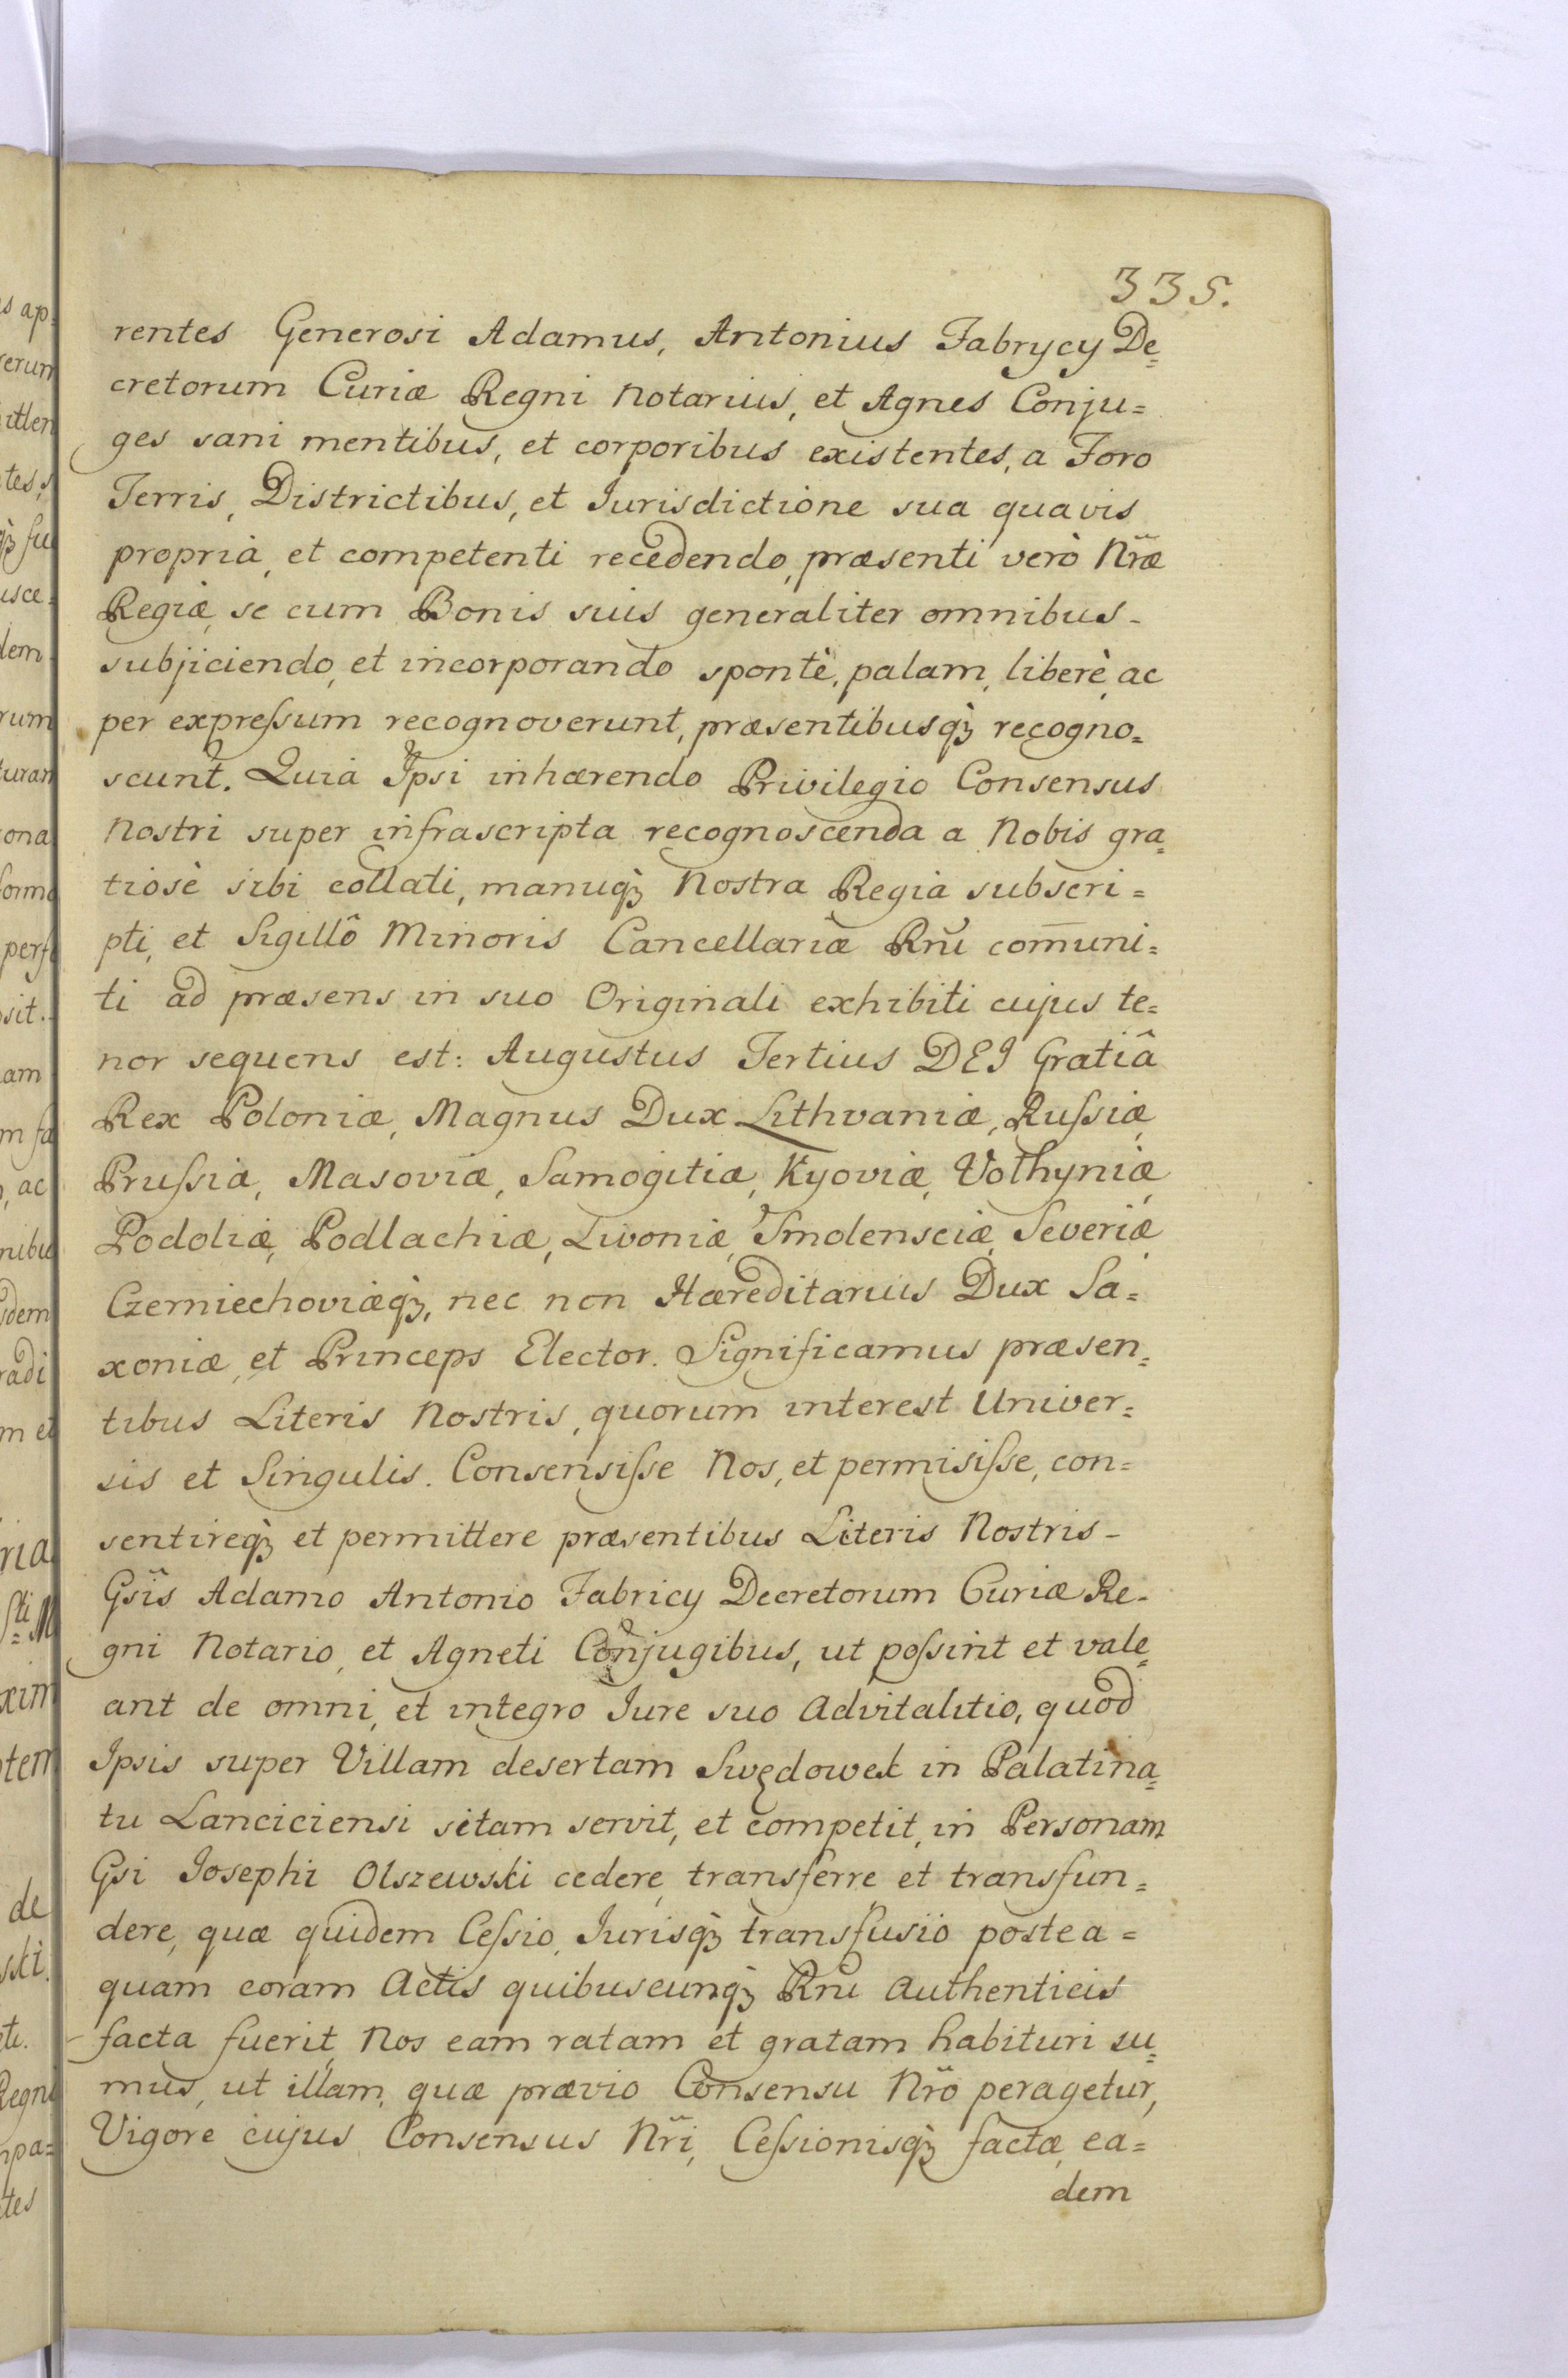 335.
rentes Generosi Adamus, Antonius Fabrycy De=
cretorum Curiæ Regni Notarius, et Agnes Conju=
ges sani mentibus, et corporibus existentes, a Foro
Terris, Districtibus, et Iurisdictione sua quavis
propria, et competenti recedendo, præsenti verò Nr̃æ
Regiæ, se cum Bonis suis generaliter omnibus-
subjiciendo, et incorporando spontè, palam, liberè, ac
per expreſsum recognoverunt, præsentibusq̀ꝫ recogno=
scunt. Quia Ipsi inhærendo Privilegio Consensus
Nostri super infrascripta recognoscenda a Nobis gra=
tiosè sibi collati, manuq̀ꝫ Nostra Regia subscri=
pti, et Sigillô Minoris Cancellariæ Rñi com̅uni=
ti ad præsens in suo Originali exhibiti cujus te=
nor sequens est: Augustus Tertius DEI Gratiâ
Rex Poloniæ, Magnus Dux Lithvaniæ, Ruſsiæ,
Pruſsiæ, Masoviæ, Samogitiæ, Kyoviæ, Volhyniæ,
Podoliæ, Podlachiæ, Livoniæ, Smolensciæ, Severiæ,
Czerniechoviæq̀ꝫ, nec non Hæreditarius Dux Sa=
xoniæ, et Princeps Elector. Significamus præsen=
tibus Literis Nostris, quorum interest Univer=
sis et Singulis. Consensiſse Nos, et permisiſse, con=
sentireq̀ꝫ et permittere præsentibus Literis Nostris-
Gsĩs Adamo Antonio Fabricy Decretorum Curiæ Re-
gni Notario, et Agneti Conjugibus, ut poſsint et vale=
ant de omni, et integro Iure suo Advitalitio, quod
Ipsis super Villam desertam Swędowek in Palatina=
tu Lanciciensi sitam servit, et competit, in Personam
Gsi Iosephi Olszewski cedere, transferre et transfun=
dere, quæ quidem Ceſsio, Iurisq̀ꝫ transfusio postea=
quam coram Actis quibuscunq̀ꝫ Rñi Authenticis
facta fuerit, Nos eam ratam et gratam habituri su=
mus, ut illam, quæ prævio Consensu Nr̃o peragetur,
Vigore cujus Consensus Nr̃i, Ceſsionisq̀ꝫ factæ, ea=
dem